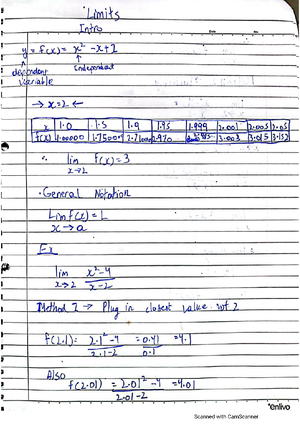 Limits
Intro
y = f(x) = x² - x + 1
dependent variable
independent
→ x = 2 ←
x | 1.0 | 1.5 | 1.9 | 1.95 | 1.999 | 2.001 | 2.005 | 2.05
f(x) | 1.00000 | 1.75000 | 2.71000 | | | 3.003 | 3.015 | 3.152
∴ lim f(x) = 3
x→2
· General Notation
Lim f(x) = L
x → a
Ex
lim x² - 4 / x - 2
x→2
Method 1 → Plug in closest value not 2
f(2.1) = 2.1² - 4 / 2.1 - 2 = 0.41 / 0.1 = 4.1
Also
f(2.01) = 2.01² - 4 / 2.01 - 2 = 4.01
enlivo
Scanned with CamScanner